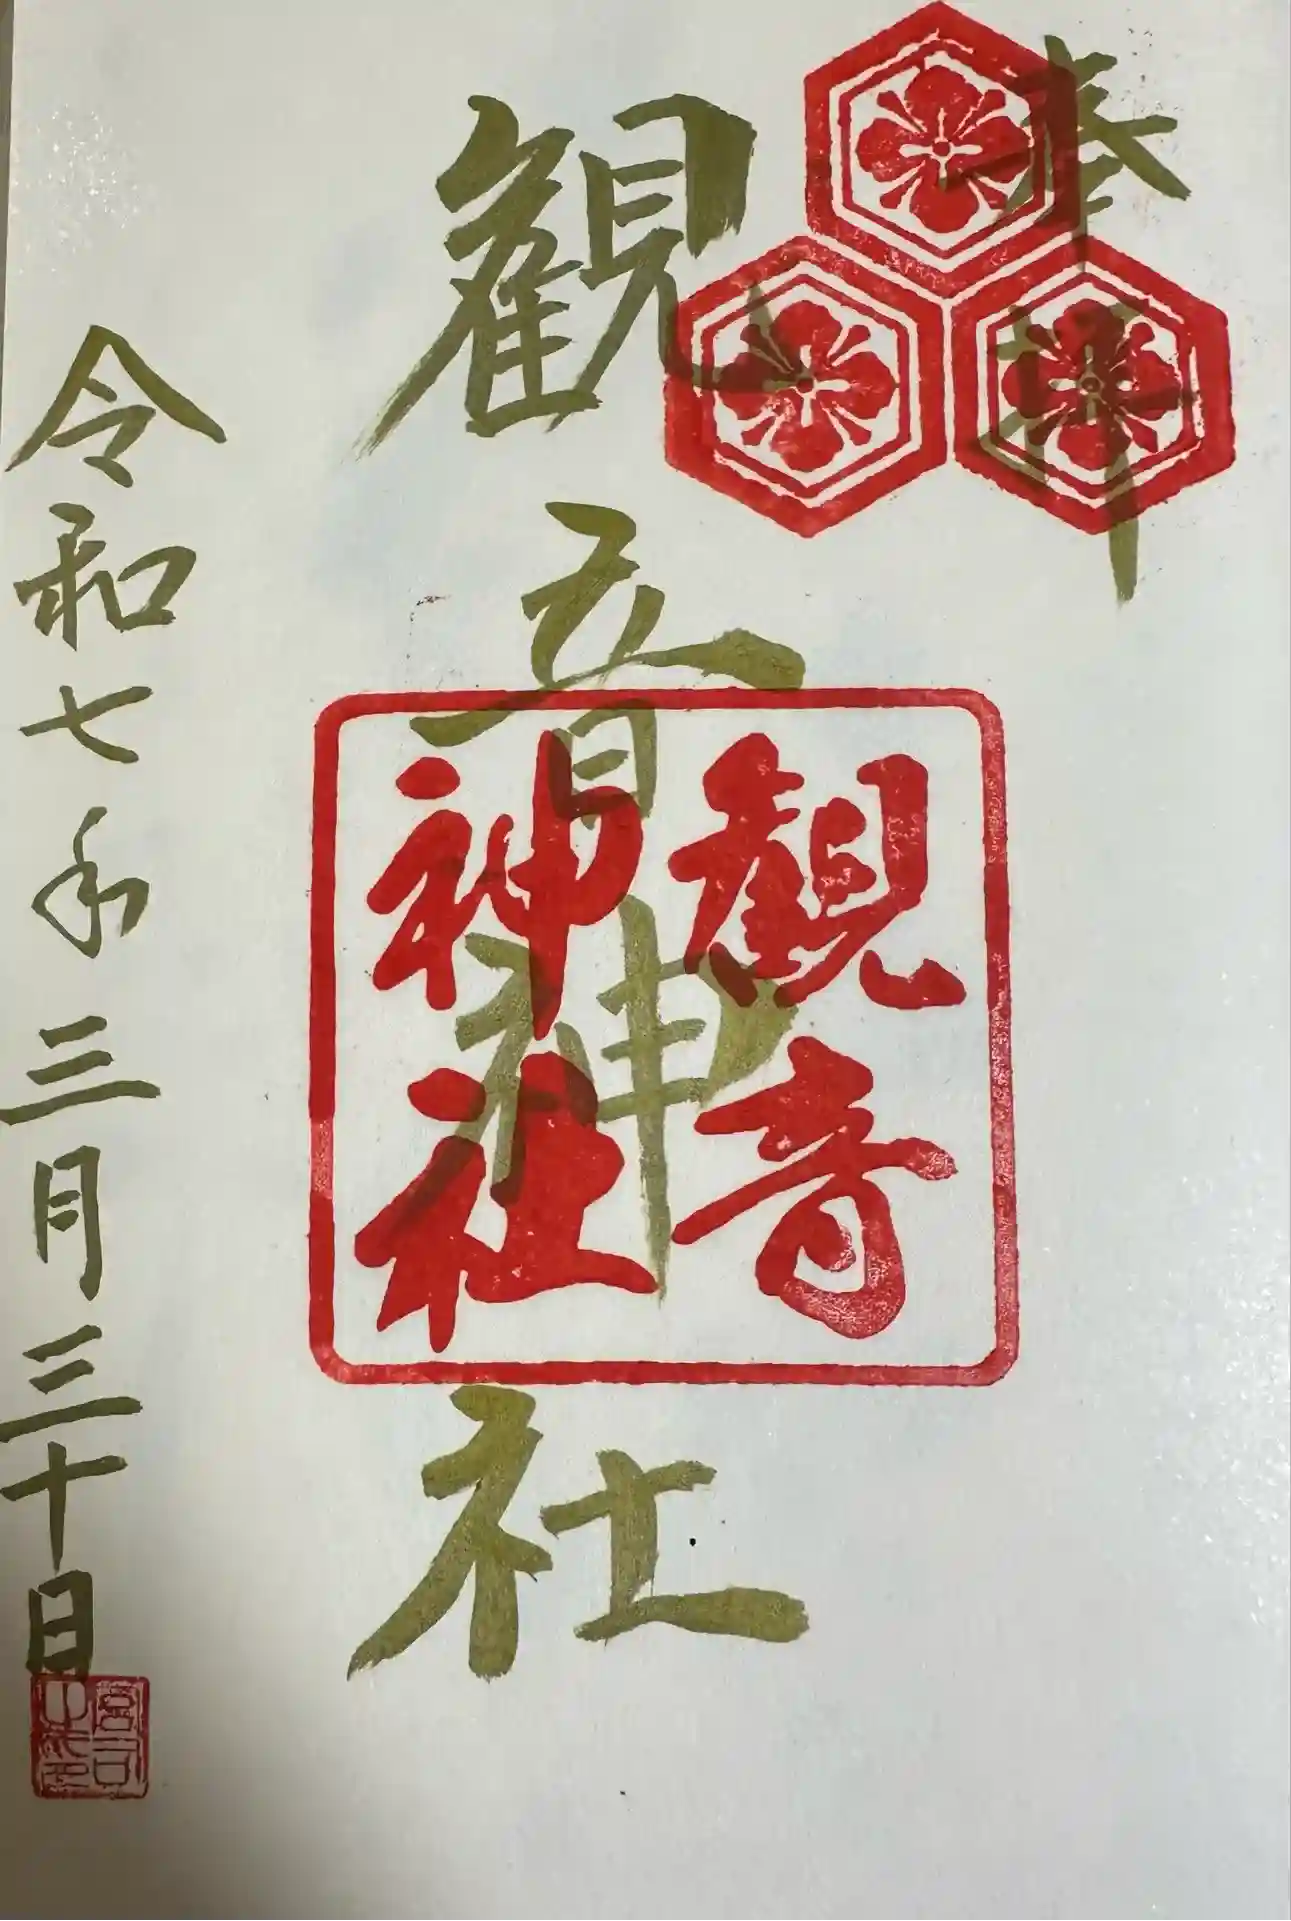 奉拝
観音神社
観音
神社
令和七年三月三十日
宮司
之印